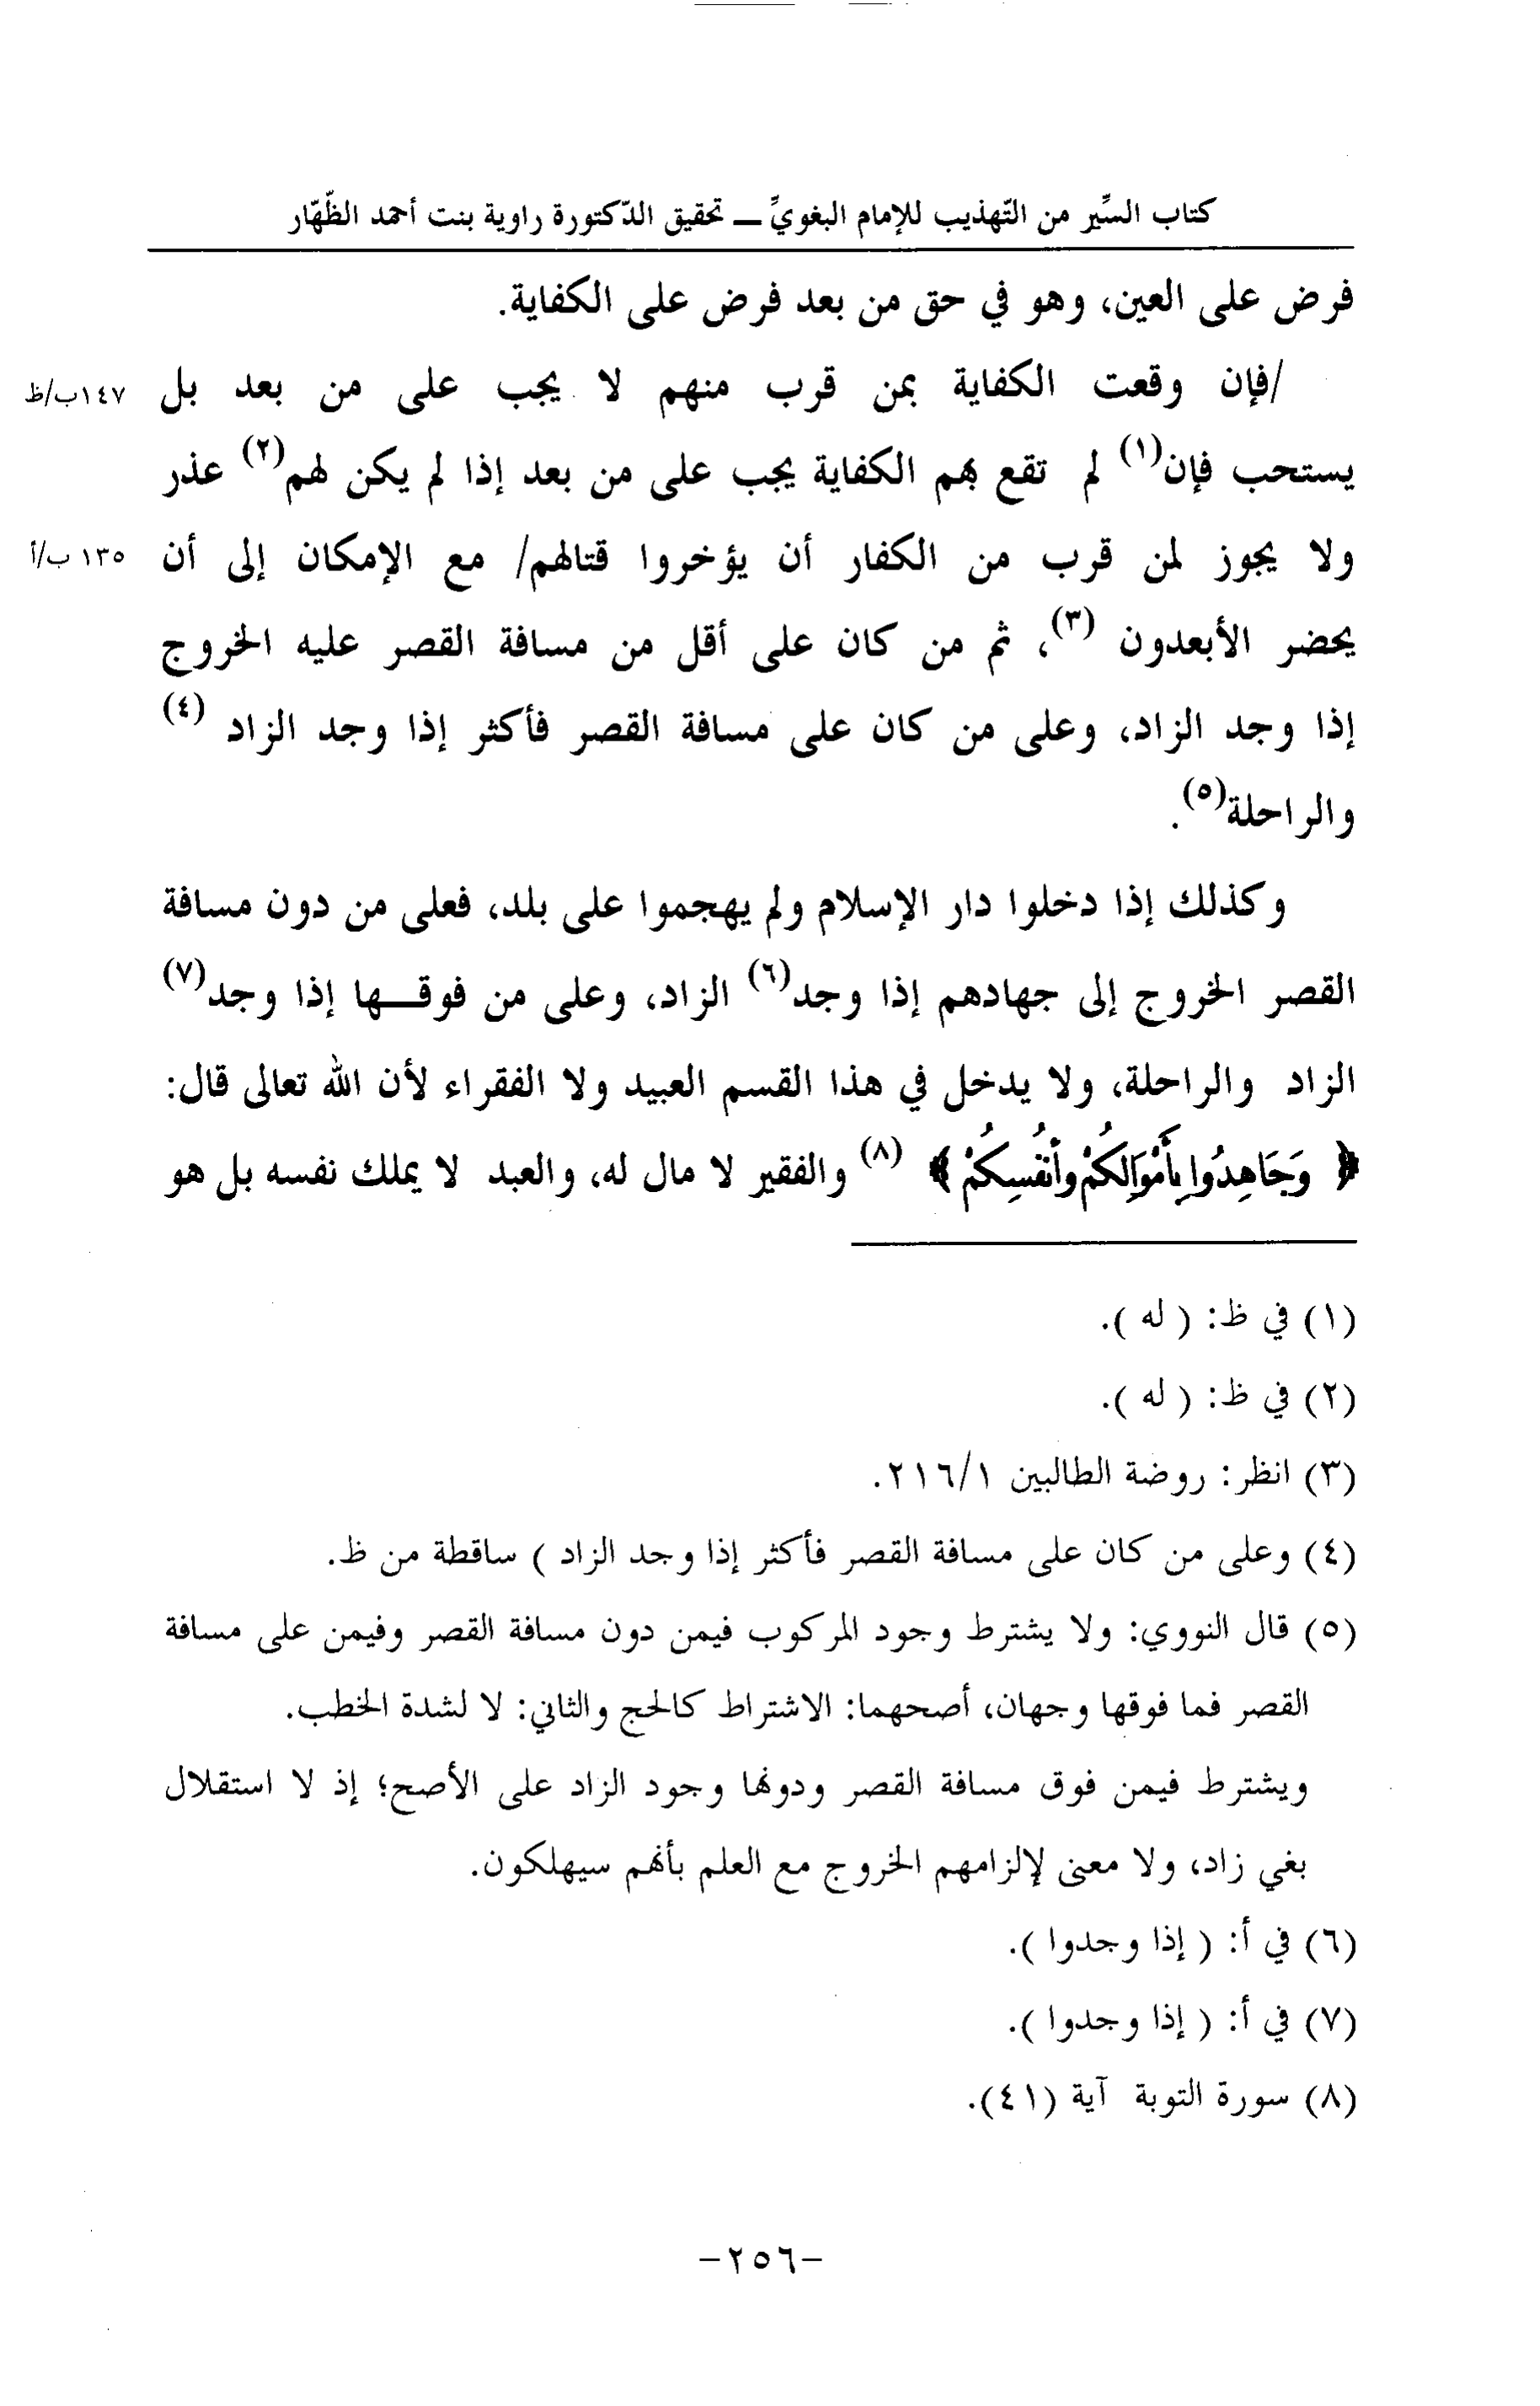 كتاب السِّير من التّهذيب للإمام البغويِّ ــ تحقيق الدّكتورة راوية بنت أحمد الظّهّار
فرض على العين، وهو في حق من بعد فرض على الكفاية.
/فإن وقعت الكفاية بمن قرب منهم لا يجب على من بعد بل ١٤٧ب/ظ
يستحب فإن(١) لم تقع بهم الكفاية يجب على من بعد إذا لم يكن لهم(٢) عذر
ولا يجوز لمن قرب من الكفار أن يؤخروا قتالهم/ مع الإمكان إلى أن ١٣٥ ب/أ
يحضر الأبعدون (٣)، ثم من كان على أقل من مسافة القصر عليه الخروج
إذا وجد الزاد، وعلى من كان على مسافة القصر فأكثر إذا وجد الزاد (٤)
والراحلة(٥).
وكذلك إذا دخلوا دار الإسلام ولم يهجموا على بلد، فعلى من دون مسافة
القصر الخروج إلى جهادهم إذا وجد(٦) الزاد، وعلى من فوقـــها إذا وجد(٧)
الزاد والراحلة، ولا يدخل في هذا القسم العبيد ولا الفقراء لأن الله تعالى قال:
﴿ وَجَاهِدُوا بِأَمْوَالِكُمْ وَأَنفُسِكُمْ ﴾ (٨) والفقير لا مال له، والعبد لا يملك نفسه بل هو
(١) في ظ: ( له ).
(٢) في ظ: ( له ).
(٣) انظر: روضة الطالبين ٢١٦/١.
(٤) وعلى من كان على مسافة القصر فأكثر إذا وجد الزاد ) ساقطة من ظ.
(٥) قال النووي: ولا يشترط وجود المركوب فيمن دون مسافة القصر وفيمن على مسافة
القصر فما فوقها وجهان، أصحهما: الاشتراط كالحج والثاني: لا لشدة الخطب.
ويشترط فيمن فوق مسافة القصر ودونها وجود الزاد على الأصح؛ إذ لا استقلال
بغي زاد، ولا معنى لإلزامهم الخروج مع العلم بأنهم سيهلكون.
(٦) في أ: ( إذا وجدوا ).
(٧) في أ: ( إذا وجدوا ).
(٨) سورة التوبة آية (٤١).
-٢٥٦-